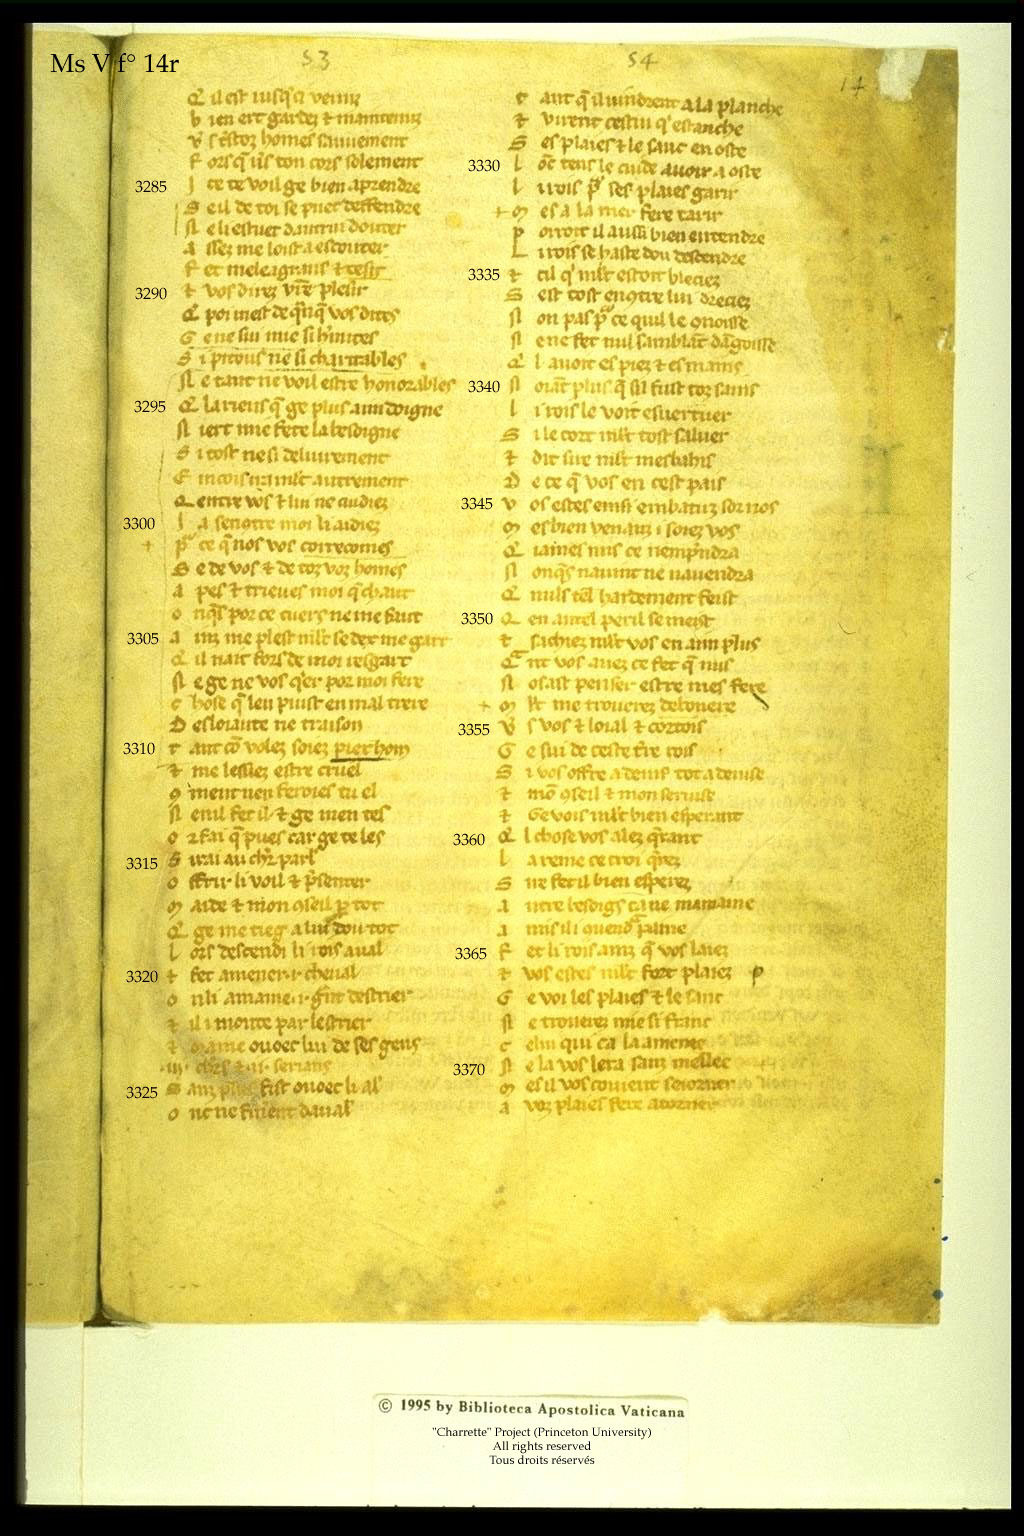 Ms V f° 14r
53
54
14
Q il est iusq̃ ci venuz
b ien ert gardez ⁊ maintenuz
F ors q̃ uĩs ton cors solement
3285
I ce te voil ge bien aprendre
S eil de toi se puet deffendre
N e li estuet dautrui douter
A ssez me loist a escouter
F et meleaganz ⁊ tesir
3290
⁊ vos direz vr̃e plesir
Q poi mest de q̃nq̃ vos dites
G ene sui mie si h'mites
S i pitous ne si charitables
N e tant ne voil estre honorables
3295
Q la riens q̃ ge plus aim doigne
N iert mie fete la besoigne
S i tost ne si deliurement
E incois ira mlt autrement
Q entre vos ⁊ lui ne cuidiez
3300
I a senc̃tre moi li aidiez
p ce q̃ nos vos correcomes
S e de vos ⁊ de toz voz homes
A pes ⁊ trieues moi q̃ chaut
O nq̃s por ce cuers ne me faut
3305
A inz me plest mlt se dex me gart
Q il nait fors de moi resgart
N e ge ne vos q'er por moi fere
C hose q̃ len puist en mal trere
D esloiaute ne traison
3310
T ant cõ volez soiez preuz hom
⁊ me lessiez estre cruel
O ment nen feroies tu el
N enil fet il ⁊ ge men tes
O r fai q̃ pues car ge te les
3315
S irai au chr̃ parl'
O ffrir li voil ⁊ p̃senter
M aide ⁊ mon ꝯseil p̱ tot
Q ge me tieg a lui dou tot
L ors descendi li rois aual
3320
⁊ fet amener .i. cheual
O n li amaine .i. g̃nt destrier
⁊ il i monte par lestrier
⁊ maine ouoec lui de ses gens
.iij. chr̃s ⁊ .ii. serianz
3325
S anz plus fist ouoec li al'
O nc ne finent daual'
T ant q̃ il uindrent a la planche
⁊ virent cestui q' estanche
S es plaies ⁊ le sanc en oste
3330
L onc tens le cuide auoir a oste
L i rois p' ses plaies garir
M es a la mer fere tarir
P orroit il ausi bien entendre
L i rois se haste dou descendre
3335
⁊ cil q' mlt estoit bleciez
S est tost encontre lui dreciez
N on pas p' ce quil le ꝯnoisse
N e ne fet nul samblant dãgoisse
Q l auoit es piez ⁊ es mains
3340
N oiãt plus q̃ sil fust toz sains
L i rois le voit esuertuer
S i le cort mlt tost saluer
⁊ dit sire mlt mesbahis
D e ce q̃ vos en cest pais
3345
V os estes ensi embatuz sor nos
M es bien venanz i soiez vos
Q iames nus ce nempr̃ndra
N onq̃s nauint ne nauendra
Q nuls tel hardement feist
3350
Q en autel peril se meist
⁊ sachiez mlt vos en aim plus
Q nt vos auez ce fet q̃ nus
N osast penser estre mes fere
M lt me trouerez debonere
3355
V s vos ⁊ loial ⁊ cortois
G e sui de ceste tr̃e rois
S i vos offre a deuis tot a deuise
⁊ mõ ꝯseil ⁊ mon seruise
⁊ Ge vois mlt bien esperant
3360
Q l chose vos alez q̃rant
L a reine ce croi q̃rez
S ire fet il bien esperez
A utre besoigs ca ne mamaine
A mis il i quend' paine
3365
F et li rois ainz q̃ vos laiez
⁊ vos estes mlt fort plaiez
G e voi les plaies ⁊ le sanc
N e trouerez mie si franc
C elui qui ca la amenee
3370
N e la vos lera sanz mellee
M es il vos couient seiorner
A voz plaies fere atorner
© 1995 by Biblioteca Apostolica Vaticana
"Charrette" Project (Princeton University)
All rights reserved
Tous droits réservés